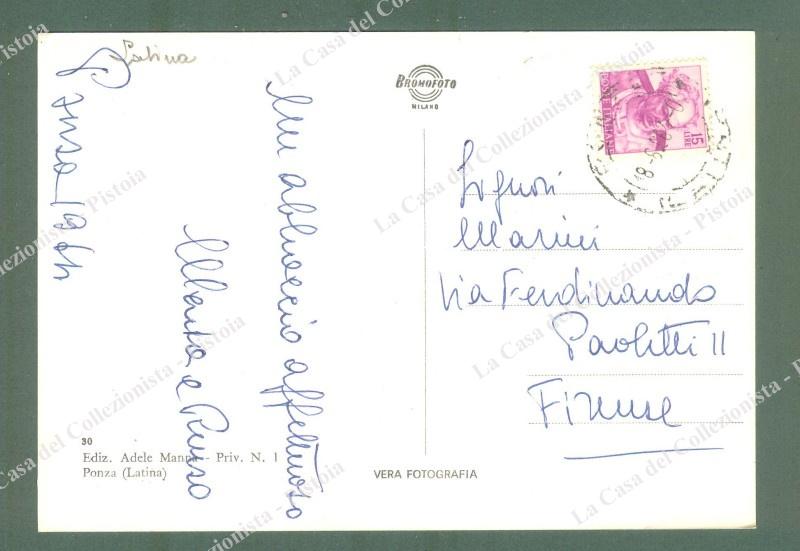 Latina
Ponza 1964
Un abbraccio affettuoso
e
BROMOFOTO
MILANO
POSTE ITALIANE
15
LIRE
Signori
Marini
Via Ferdinando
Paoletti 11
Firenze
30
Ediz. Adele Manna - Priv. N. 1
Ponza (Latina)
VERA FOTOGRAFIA
La Casa del Collezionista - Pistoia